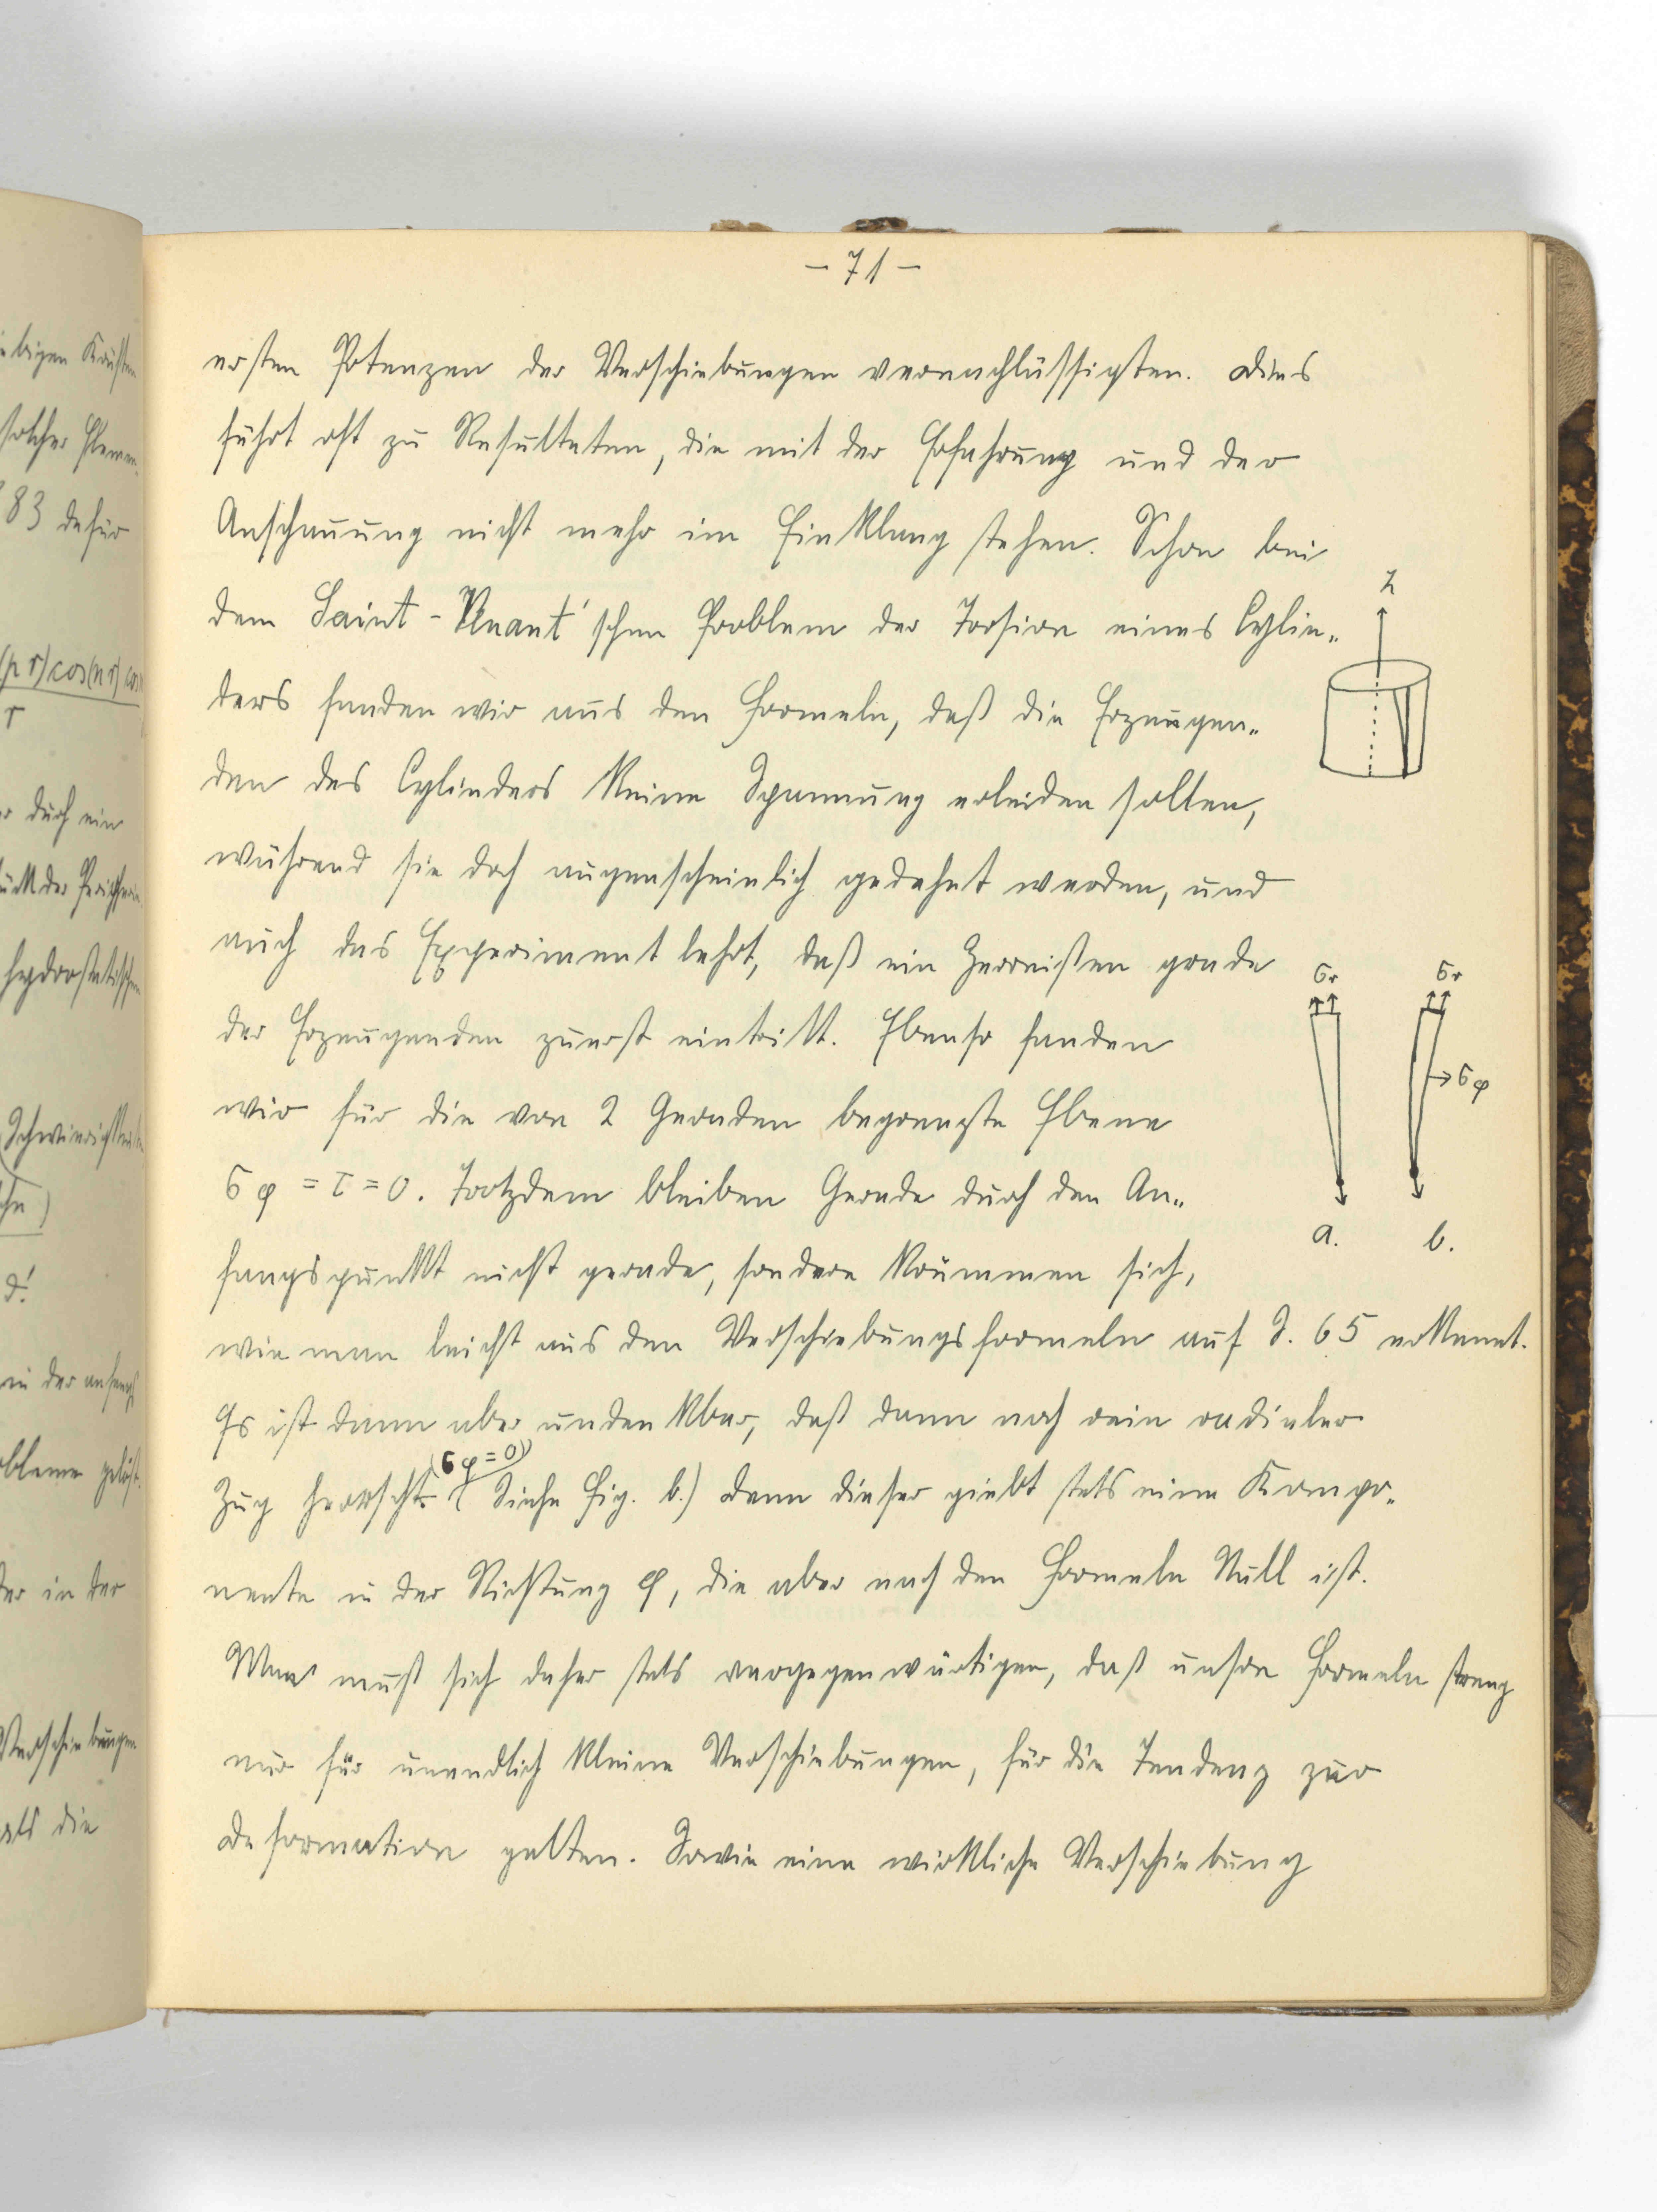 - 71 -
ersten Potenzen der Verschiebungen vernachlässigten. Dies
führt oft zu Resultaten, die mit der Erfahrung und der
Anschauung nicht mehr im Einklang stehen. Schon bei
dem Saint-Venant'schen Problem der Torsion eines Cylin„
ders fanden wir aus den Formeln, daß die Erzeugen„
den des Cylinders keine Spannung erleiden sollten,
während sie doch augenscheinlich gedehnt werden, und
auch das Experiment lehrt, daß ein Zerreißen grade
der Erzeugenden zuerst eintritt. Ebenso fanden
wir für die von 2 Geraden begrenzte Ebene
σφ = τ = 0. Trotzdem bleiben Gerade durch den An„
fangspunkt nicht gerade, sondern krümmen sich,
wie man leicht aus den Verschiebungsformeln auf S. 65 erkennt.
Es ist dann aber undenkbar, daß dann noch rein radialer
(σφ = 0)
Zug herrscht. (Siehe Fig. b.) Denn dieser giebt stets eine Kompo„
nente in der Richtung φ, die aber nach den Formeln Null ist.
Man muß sich daher stets vergegenwärtigen, daß unsre Formeln streng
nur für unendlich kleine Verschiebungen, für die Tendenz zur
Deformation gelten. Sowie eine wirkliche Verschiebung
z
σr
σr
σφ
a.
b.
83 dafür
(pr)cos(nr) cos
r
durch ein
hydrostatischen
d!
in der
Verschiebungen
als die